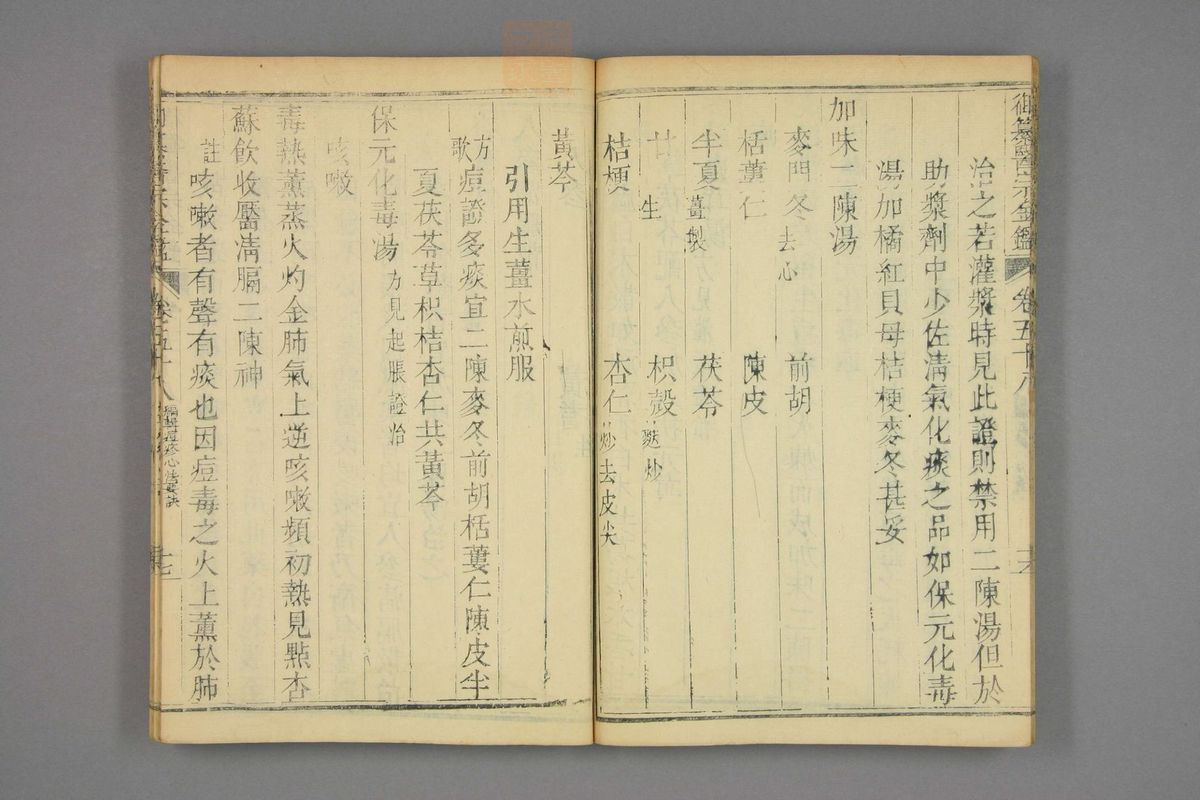 御纂醫宗金鑑 卷五十八
治之若灌漿時見此證則禁用二陳湯但於
助漿劑中少佐淸氣化痰之品如保元化毒
湯加橘紅貝母桔梗麥冬甚妥
加味二陳湯
麥門冬去心 前胡
栝蔞仁 陳皮
半夏薑製 茯苓
甘草生 枳殼麩炒
桔梗 杏仁炒去皮尖
黃芩
引用生薑水煎服
方歌 痘證多痰宜二陳麥冬前胡栝蔞仁陳皮半
夏茯苓草枳桔杏仁共黃芩
保元化毒湯 方見起脹證治
咳嗽
毒熱薰蒸火灼金肺氣上逆咳嗽頻初熱見點杏
蘇飲收靨淸膈二陳神
註 咳嗽者有聲有痰也因痘毒之火上薰於肺
卷五十八 編輯痘疹心法要訣 十七